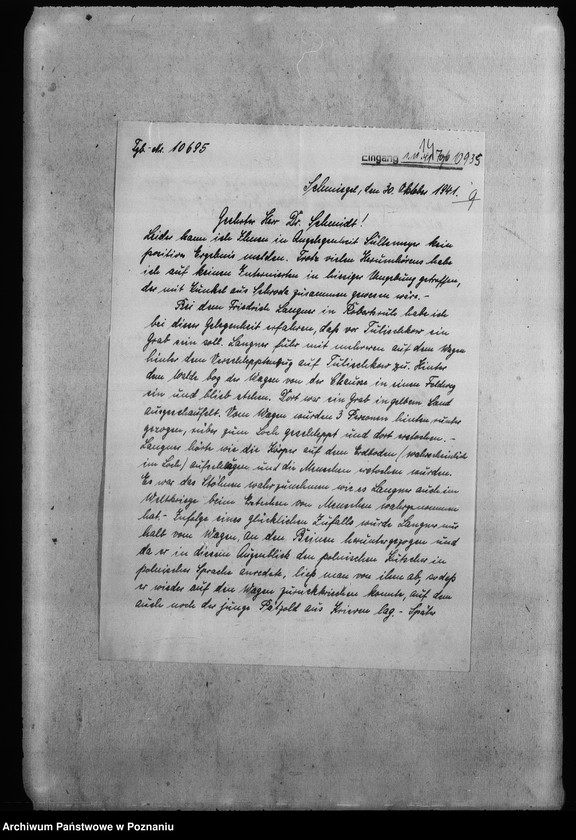 Tgb.-Nr. 10695
Eingang 0935
Schmiegel, den 30. Oktober 1941.
9
Geehrter Herr Dr. Schmidt!
Leider kann ich Ihnen in Angelegenheit Sültemeyer kein
positives Ergebnis melden. Trotz vielen Herumhörens habe
ich auf keinen Internierten in hiesiger Umgebung getroffen,
der mit Kunkel aus Schrode zusammen gewesen wäre. -
Bei dem Friedrich Langner in Robertsruh habe ich
bei dieser Gelegenheit erfahren, daß vor Tulischkow ein
Grab sein soll. Langner fuhr mit mehreren auf dem Wagen
hinter dem Verschlepptenzug auf Tulischkow zu. Hinter
dem Walde bog der Wagen von der Chausse in einen Feldweg
ein und blieb stehen. Dort war ein Grab in gelbem Sand
ausgeschaufelt. Vom Wagen wurden 3 Personen hinten runter
gezogen, rüber zum Loch geschleppt und dort erstochen. -
Langner hörte wie die Körper auf dem Erdboden /wahrscheinlich
im Loch/ aufschlugen und die Menschen erstochen wurden.
Es war das Stöhnen wahrzunehmen wie es Langner auch im
Weltkriege beim Erstechen von Menschen wahrgenommen
hat. - Infolge eines glücklichen Zufalls wurde Langner nur
halb vom Wagen, an den Beinen heruntergezogen und
da er in diesem Augenblick den polnischen Kutscher in
polnischer Sprache anredete, ließ man von ihm ab, sodaß
er wieder auf den Wagen zurückkriechen konnte, auf dem
auch noch der junge Pätzold aus Kriewen lag. - Später
Archiwum Państwowe w Poznaniu